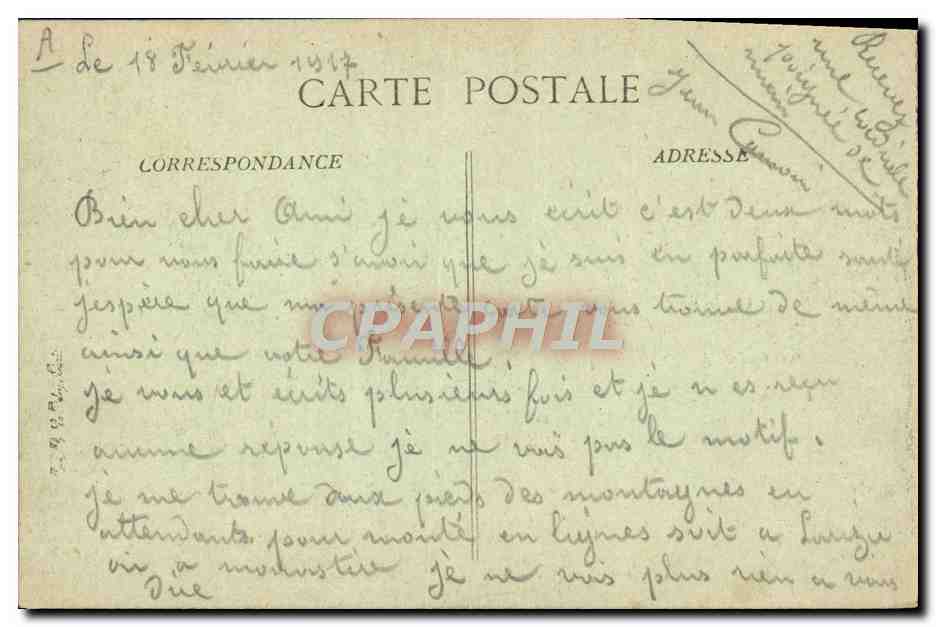 A Le 18 Février 1917
CARTE POSTALE
CORRESPONDANCE
ADRESSE
Recevez
une cordiale
poignée de
main
Bien cher Ami je vous écrit c'est deux mots
pour vous faire s'avoir que je suis en parfaite santé
j'espère que ma présente carte vous trouve de même
CPAPHIL
ainsi que votre Famille.
je vous et écrits plusieurs fois et je n es reçu
aucune réponse je ne vois pas le motif.
je me trouve aux pieds des montagnes en
attendants pour monté en lignes soit a
ou a monastère je ne vois plus rien a vous
dire